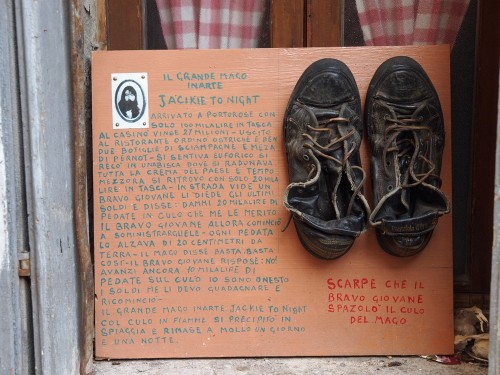 IL GRANDE MAGO
IN ARTE
JACIKIE TO NIGHT
ARRIVATO A PORTOROSE CON
SOLO 100 MILA LIRE IN TASCA
AL CASINO VINCE 27 MILIONI - USCITO
AL RISTORANTE ORDINO OSTRICHE E BEN
DUE BOTIGLIE DI SCIAMPAGNE E MEZA
DI PERNOT - SI SENTIVA EUFORICO SI
RECO IN UNA BISCA DOVE SI RADUNAVA
TUTTA LA CREMA DEL PAESE E TEMPO
MEZZORA SI RITROVO CON SOLO 20 MILA
LIRE IN TASCA - IN STRADA VIDE UN
BRAVO GIOVANE LI DIEDE GLI ULTIMI
SOLDI E DISSE: DAMMI 20 MILA LIRE DI
PEDATE IN CULO CHE ME LE MERITO
IL BRAVO GIOVANE ALLORA COMINCIO
A SOMINISTRARGUELE - OGNI PEDATA
LO ALZAVA DI 20 CENTIMETRI DA
TERRA - IL MAGO DISSE BASTA, BASTA
COSI - IL BRAVO GIOVANE RISPOSE: NO!
AVANZI ANCORA 10 MILA LIRE DI
PEDATE SUL CULO IO SONO ONESTO
I SOLDI ME LI DEVO GUADAGNARE E
RICOMINCIO -
IL GRANDE MAGO IN ARTE JACKIE TO NIGHT
COL CULO IN FIAMME SI PRECIPITO IN
SPIAGGIA E RIMASE A MOLLO UN GIORNO
E UNA NOTTE.
SCARPE CHE IL
BRAVO GIOVANE
SPAZOLO IL CULO
DEL MAGO